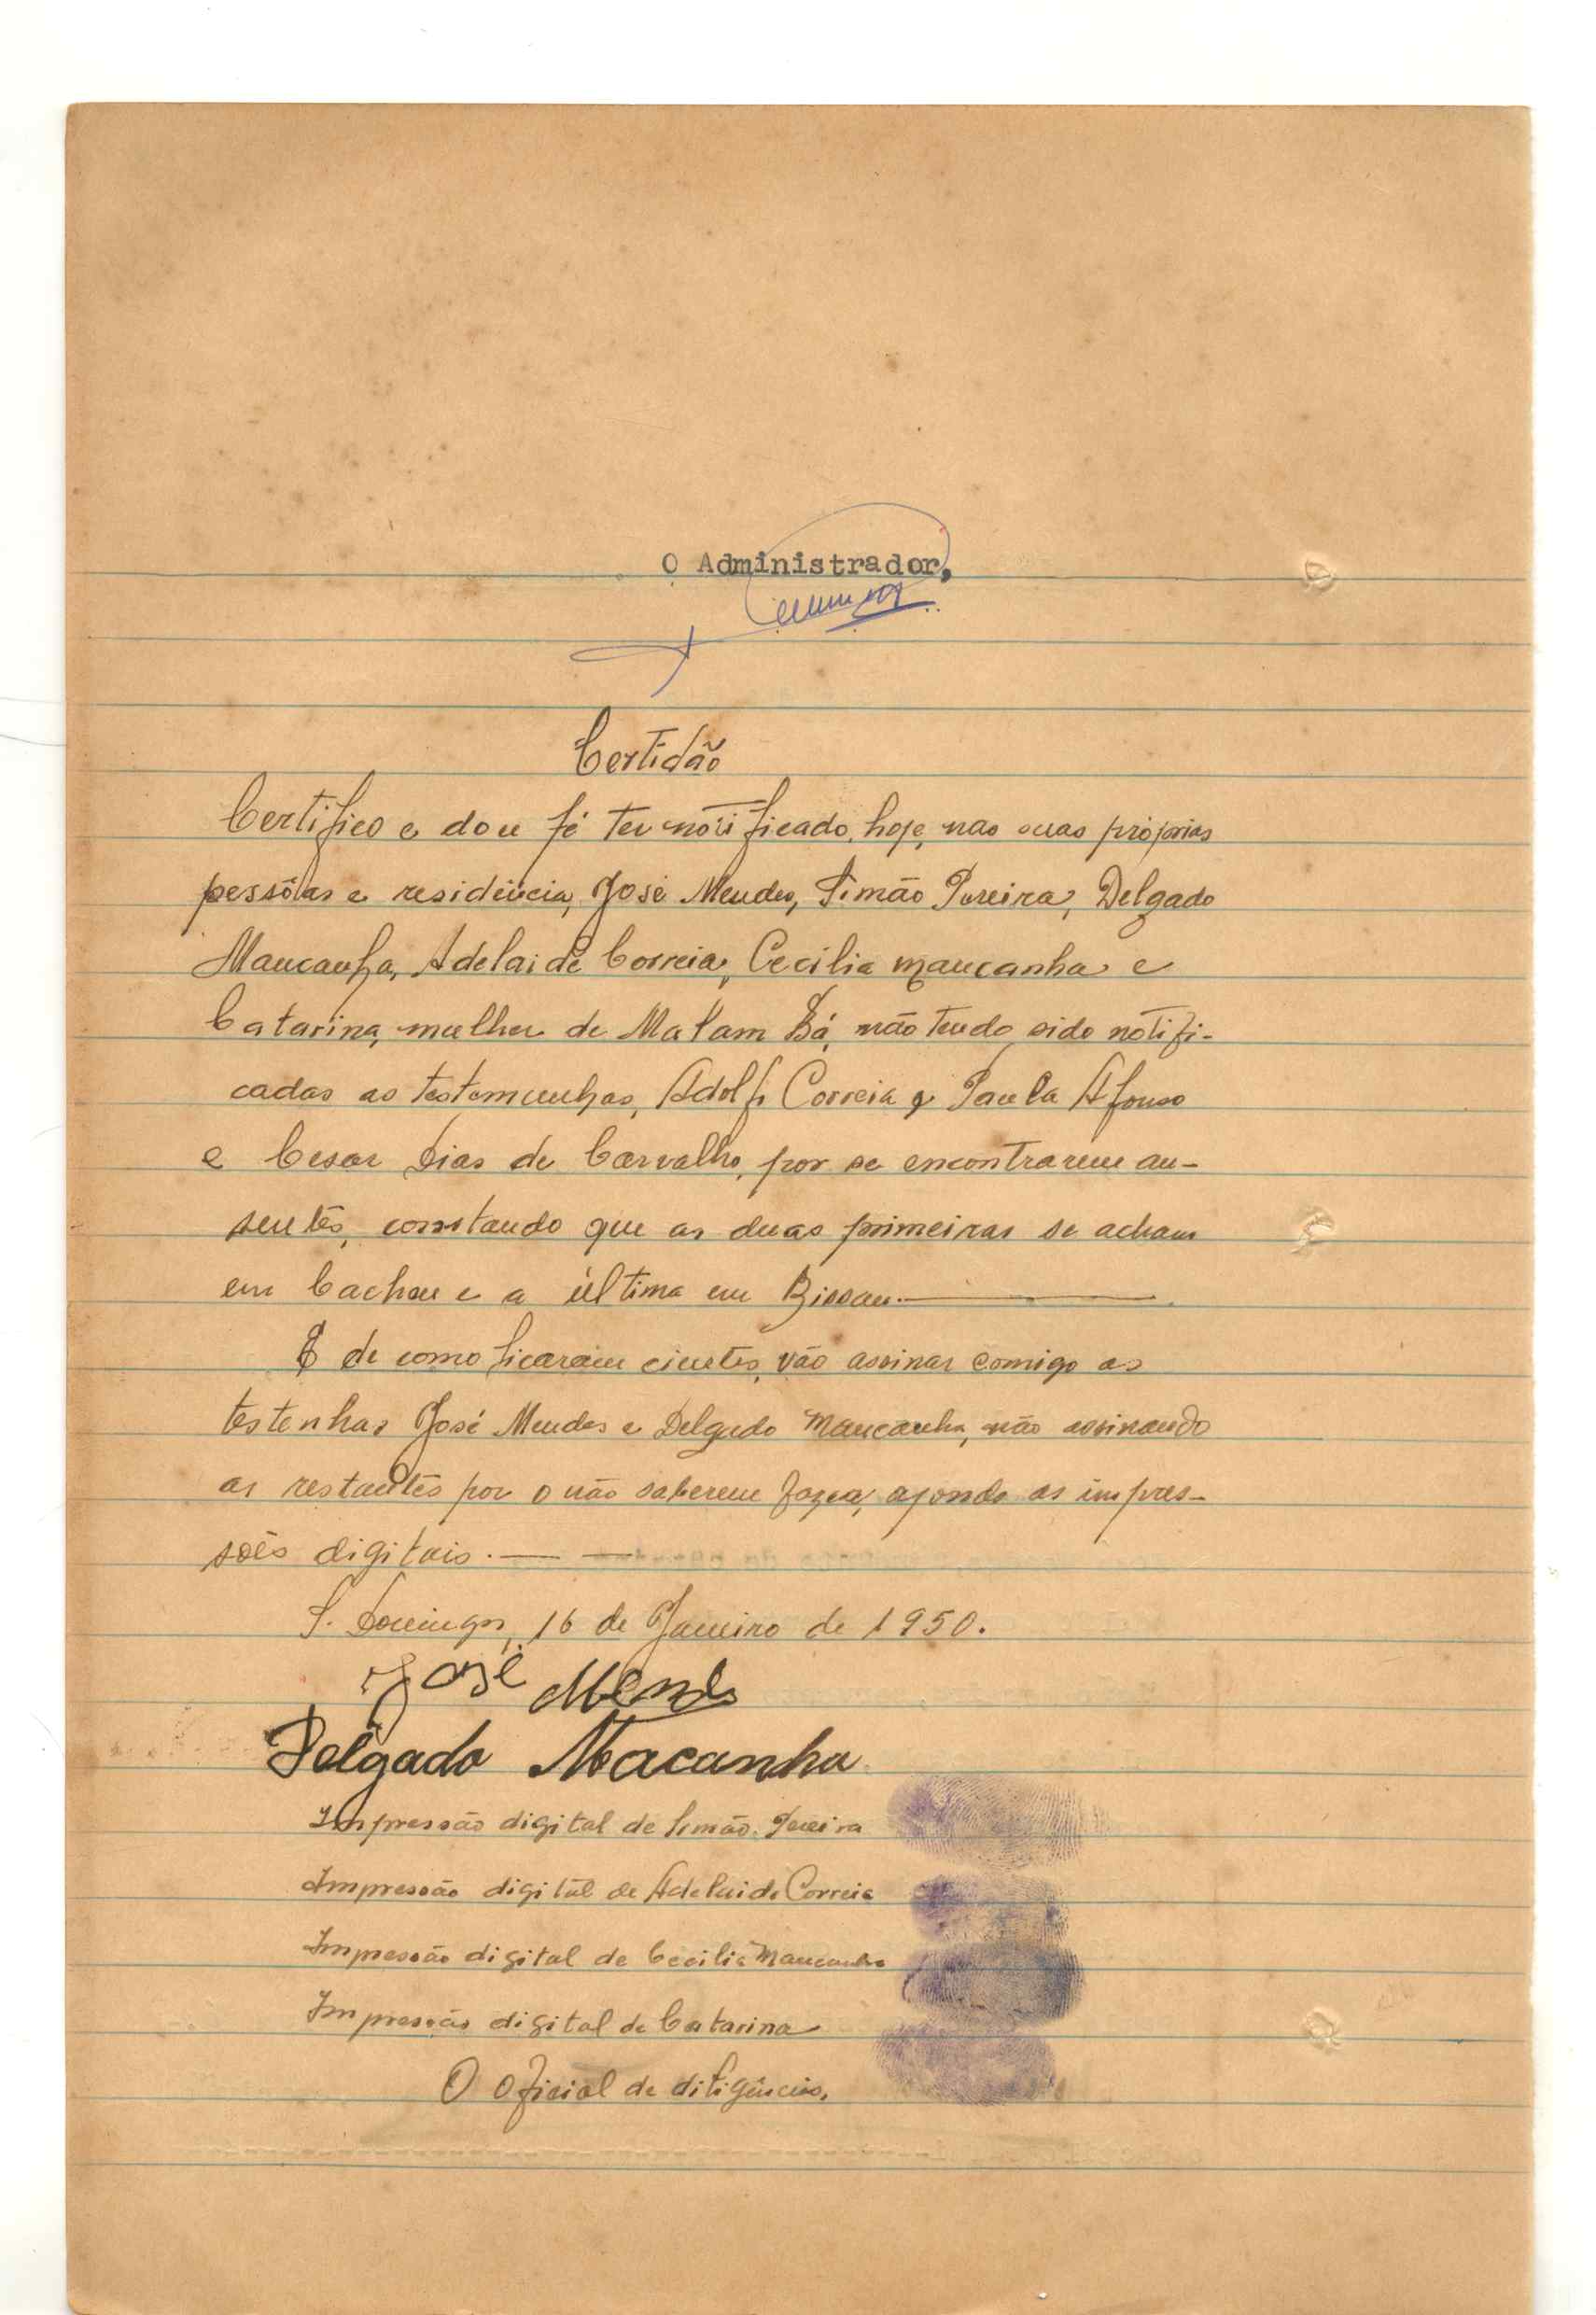 O Administrador,
Certidão
Certifico e dou fé ter notificado, hoje, nas suas próprias
pessôas e residência, José Mendes, Simão Pereira, Delgado
Mancanha, Adelaide Correia, Cecilia Mancanha e
Catarina, mulher de Malam Bá, não tendo sido notifi-
cadas as testemunhas, Adolf Correia Paula Afonso
e Cesar Dias de Carvalho, por se encontrarem au-
sentes, constando que as duas primeiras se acham
em Cacheu e a última em Bissau.
E de como ficaram cientes, vão assinar comigo as
testenhas José Mendes e Delgado Mancanha, não assinando
as restantes por o não saberem fazer, apondo as impres-
sões digitais.
S. Domingos, 16 de Janeiro de 1950.
José Mends
Delgado Macanha
Impressão digital de Simão Pereira
Impressão digital de Adelaide Correia
Impressão digital de Cecilia Mancanha
Impressão digital de Catarina
O Oficial de diligências,